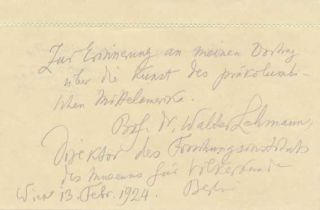 Zur Erinnerung an meinen Vortrag
über die Kunst des präkolumbi-
schen Mittelamerika.
Prof. Dr. Walter Lehmann,
Direktor des Forschungsinstituts
des Museums für Völkerkunde
Wien 13. Febr. 1924. Berlin